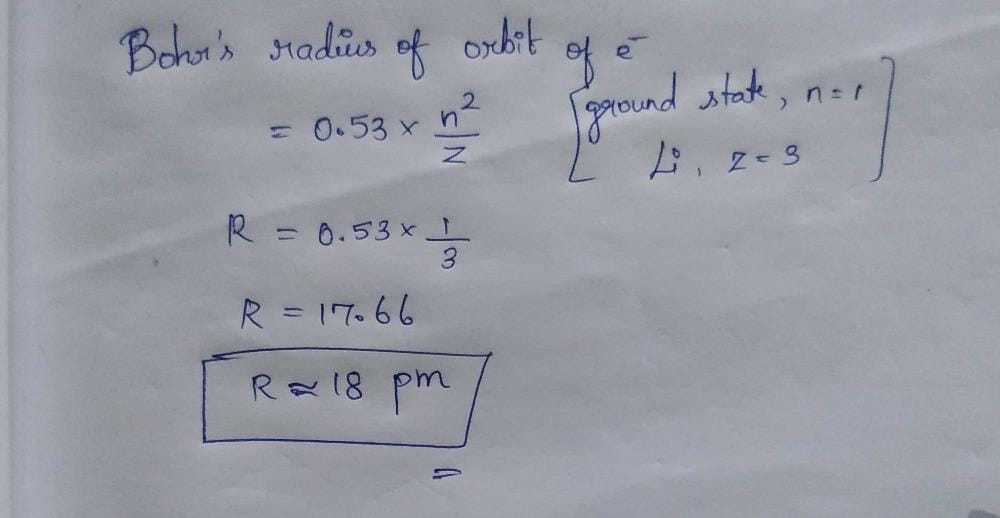 Bohr's radius of orbit of e⁻
= 0.53 × n²/Z [ground state, n = 1
Li, Z = 3]
R = 0.53 × 1/3
R = 17.66
R ≈ 18 pm
=